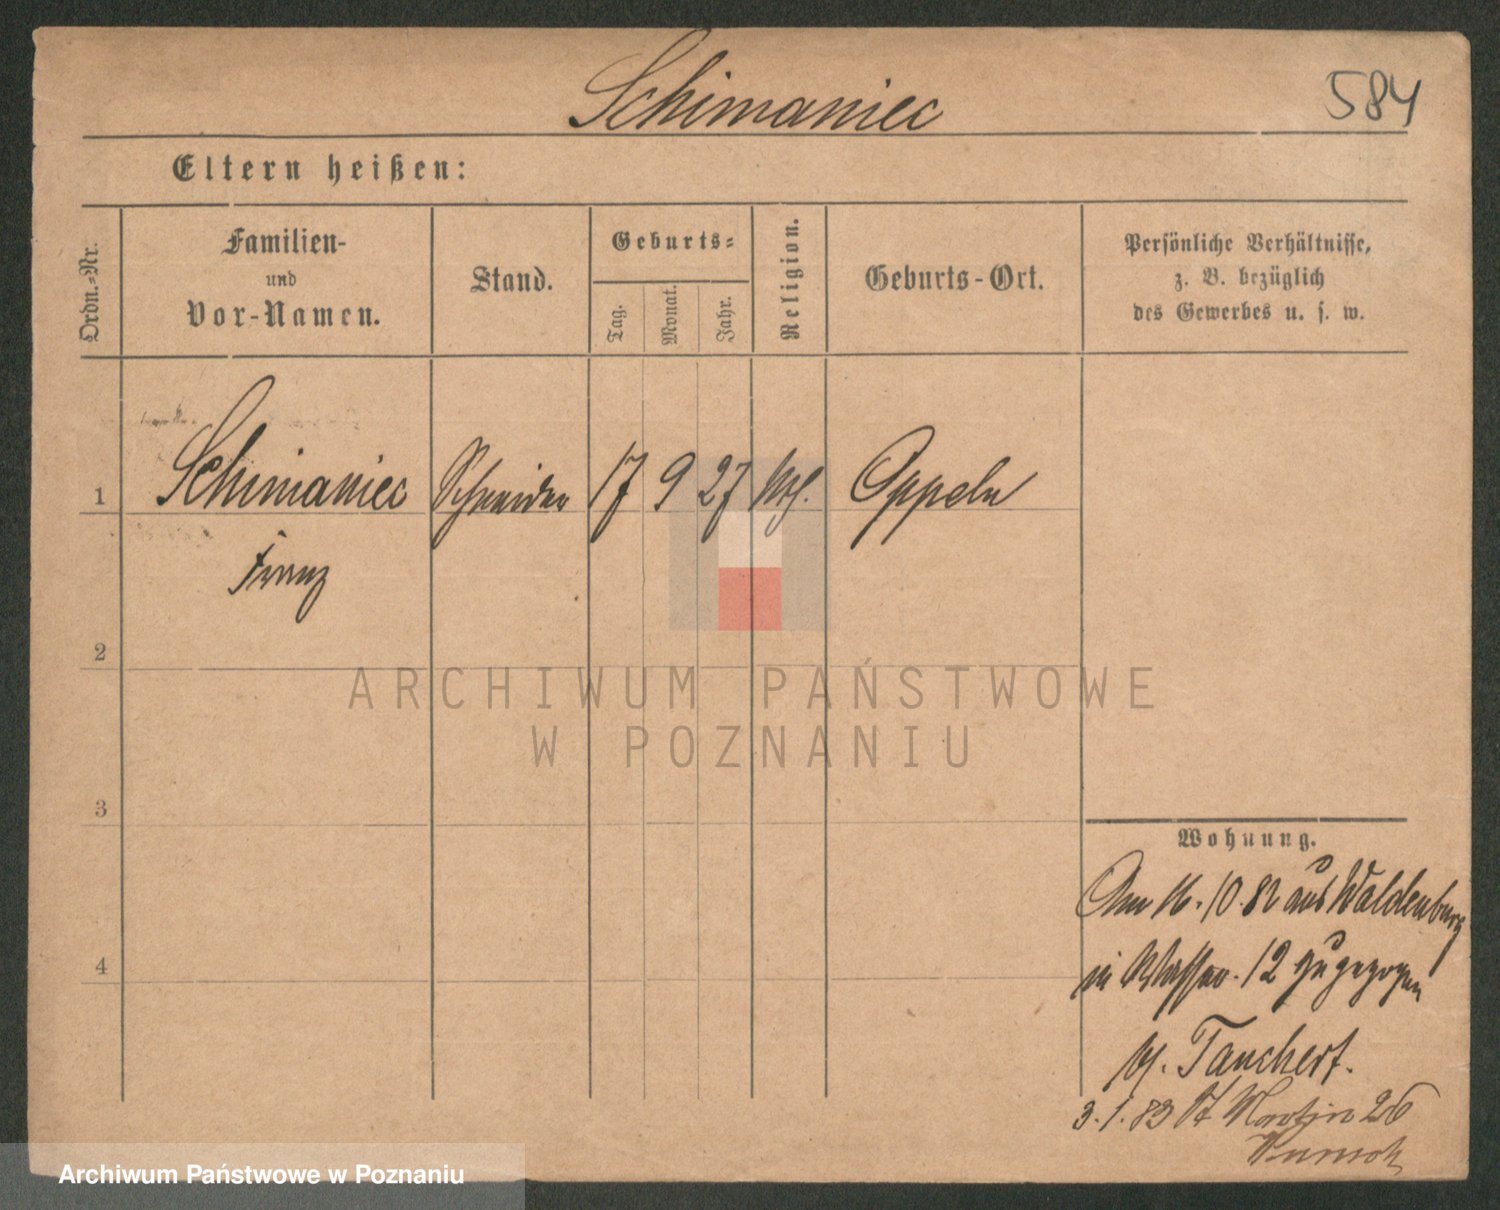 Schimaniec
584
Eltern heißen:
Ordn.-Nr.
Familien-
und
Vor-Namen.
Stand.
Geburts-
Tag.
Monat.
Jahr.
Religion.
Geburts-Ort.
Persönliche Verhältnisse,
z. B. bezüglich
des Gewerbes u. s. w.
1 Schimaniec Schneider 17 9 27 kth. Oppeln
Franz
2
3
4
Wohnung.
Am 16.10.82 aus Waldenburg
in Wasser. 12 zugezogen
b. Tauchert.
3.1.83 St Martin 26
ARCHIWUM PAŃSTWOWE
W POZNANIU
Archiwum Państwowe w Poznaniu